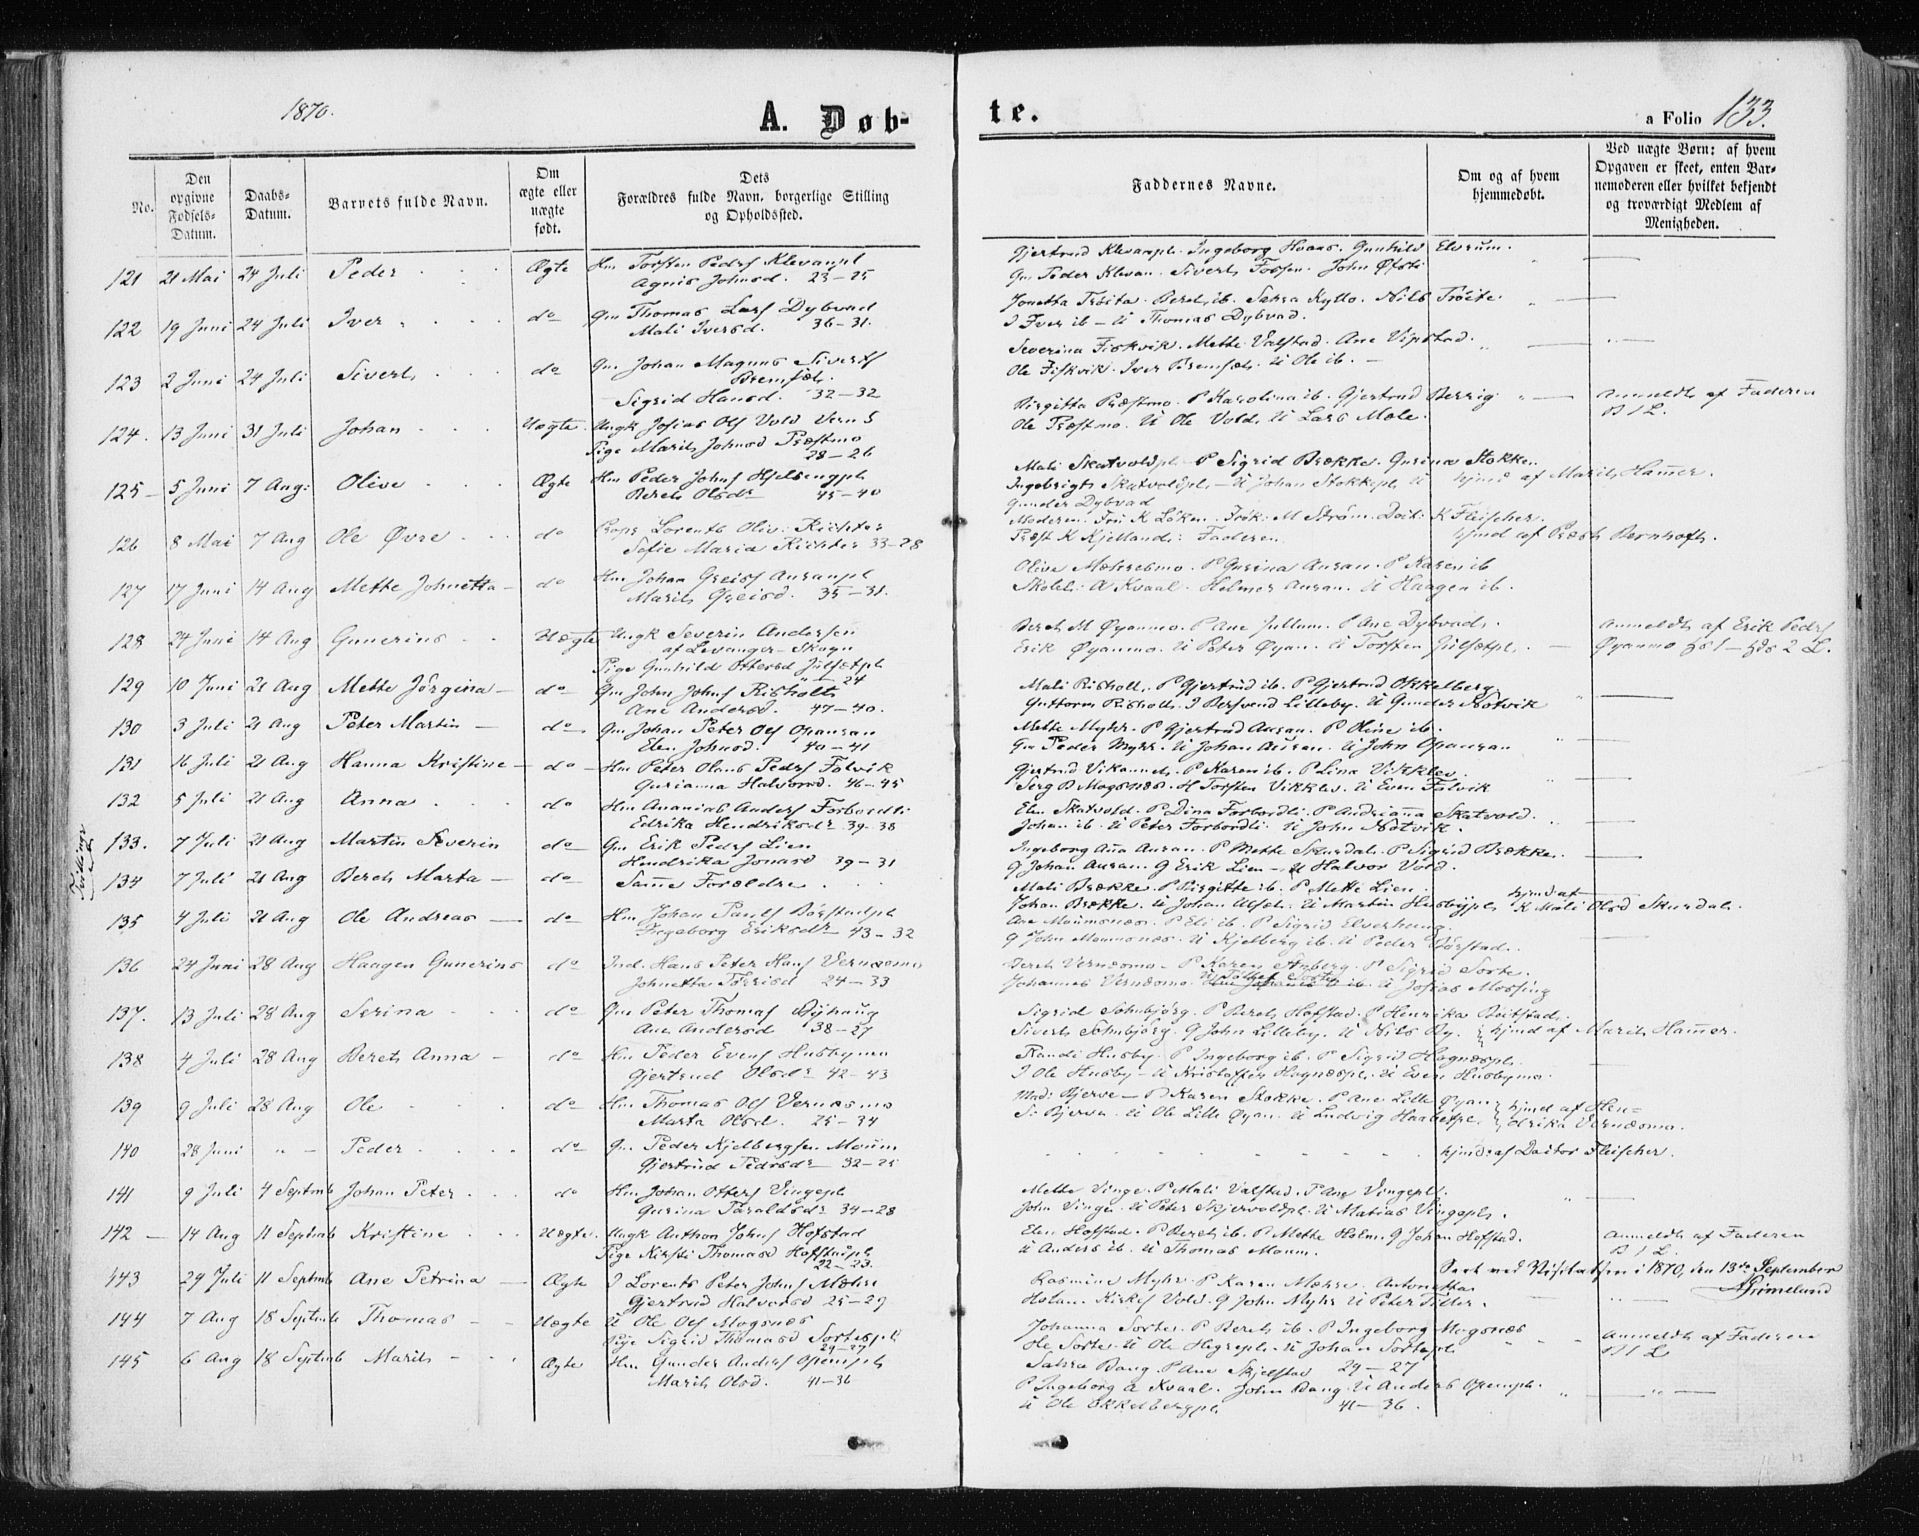 1870.
A. Døb-
te.
a Folio 133.
No.
Den opgivne Fødsels-Datum.
Daabs-Datum.
Barnets fulde Navn.
Om ægte eller uægte født.
Dets Forældres fulde Navn, borgerlige Stilling og Opholdssted.
Faddernes Navne.
Om og af hvem hjemmedøbt.
Ved uægte Børn: af hvem Opgaven er skeet, enten Barnemoderen eller hvilket bekjendt og troværdigt Medlem af Menigheden.
121 21 Mai 24 Juli Peder Ægte Hm Torsten Peders Klevanpl
Agnis Johnsd. 23-25
Gjertrud Klevanpl. Ingeborg Hvaas. Gunhild Elvrum.
Gm Peder Klevan. Siverts Forsen. John Øfsti
122 19 Juni 24 Juli Iver do Gm Thomas Lars Dybvad
Mali Iversd. 36-31.
Jonetta Trøite. Berets ib. Sahra Kyllo. Nils Trøite.
I Iver ib - U Thomas Dybvad.
123 2 Juni 24 Juli Siverts do Gm Johan Magnus Siverts
Bremset.
Sigrid Hansd. 32-32
Severina Fiskvik. Mette Valstad. Ane Vipstad.
Ole Fiskvik. Iver Bremset. U Ole ib.
124. 13 Juni 31 Juli Johan Uægte. Ungk Josias Ols Vold Vern S
Pige Marits Johnsd Præstmo
28-26
Birgitta Præstmo. P Karolina ib. Gjertrud Berrig
Ole Præstmo. U Ole Vold. U Lars Mæle.
Anmeldt af Faderen
B 1 L.
125 5 Juni 7 Aug: Olive Ægte Hm Peder Johns Hjelsengpl
Berets Olsdr 45-40
Mali Skatvoldpl. P Sigrid Brække. Gurina Stokken
Ingebrigts Skatvoldpl. U Johan Stokkepl. U
Gunder Dybvad
hjmd af Marits Hamer.
126 8 Mai 7 Aug Ole Øvre do Propr Lorents Oliv: Richter
Sofie Maria Richter 33-28
Moderen. Fru K Løken. Frøk: M Strøm. Doct: K Fleischer.
Præst K Kjelland: Faderen
hjmd af Præst Bernhoft.
127 17 Juni 14 Aug Mette Johnetta do Hm Johan Greis Auranpl
Marits Greisd. 35-31.
Olive Mæhresmo. P Gurina Auran. P Karen ib
Skolel: A Kvaal. Helmer Auran. U Haagen ib.
128 24 Juni 14 Aug Gunerius Uægte Ungk Severin Andersen
af Levanger-Skogn
Pige Gunhild Ottersd Julsetpl
24
Berets M Øyanmo. P Ane Jullum. P Ane Dybvads.
Erik Øyanmo. U Peter Øyan. U Torsten Julsetpl.
Anmeldt af Erik Peders
Øyanmo
129 10 Juni 21 Aug Mette Jørgina do Gm John Johns Risholt
Ane Andersd. 47-40.
Mali Risholt. P Gjertrud ib. P Gjertrud Økkelberg
Guttorm Risholt. I Bersvend Lilleby. U Gunder Hotvik
130 3 Juli 21 Aug Peter Martin do Gm Johan Peter Ols Opauran
Elen Johnsd. 40-41
Mette Myhr. P Gjertrud Auran. P Oline ib.
Gm Peder Myhr. U Johan Auran. U John Opauran
131 16 Juli 21 Aug Hanna Kristine do Hm Peter Olaus Peders Folvik
Gurianna Halvorsd. 46-45
Gjertrud Vikan P Karen ib. P Lina Vikklev.
Serg P Mogsnes. H Torsten Vikklev. U Even Folvik
132 5 Juli 21 Aug Anna do Hm Ananias Anders Forbordli
Edrika Hendriksdr 39-38
Elen Skatvold. P Dina Forbordli. P Andrianna Skatvold.
Johan ib. U Peter Forbordli. U John Hotvik.
Tvillinger
133. 7 Juli 21 Aug Martin Severin do Gm Erik Peders Lien
Hendrika Jonasd 39-31
Ingeborg Ana Auran. P Mette Skurdal. P Sigrid Brækken.
G Johan Auran. G Erik Lien. U Halvor Vold.
134 7 Juli 21 Aug Berets Marta do Samme Forældre
Mali Brække. P Birgitte ib. P Mette Lien.
Johan Brække. U Johan U Martin Husbypl.
hjmd af
K Mali Olsd Skurdal.
135 4 Juli 21 Aug Ole Andreas do Hm Johan Pauls Børstadpl
Ingeborg Eriksdr 43-32
Ane Moumsnes. P Eli ib. P Sigrid Elverhaug
G John Moumsnes. U Kjelberg ib. U Peder Børstad.
136 24 Juni 28 Aug Haagen Gunerius do Ind. Hans Peter Hans Vernesmo
Johnetta Torrisd 24-33
Berets Vernesmo. P Karen Arnberg. P Sigrid Sorte.
Johannes Vernesmo. U Tollef Sorte U Josias Mossing
137. 13 Juli 28 Aug Serina do Gm Peter Thomas Byhaug
Ane Andersd 38-27
Sigrid Solnbjørg. P Berets Hofstad. P Henrika Beitstad.
Siverts Solnbjørg. G John Lilleby. U Nils By. hjmd af Marits Hamer.
138 4 Juli 28 Aug Berets Anna do Hm Peder Evens Husbymo
Gjertrud Olsdr 42-43
Randi Husby. P Ingeborg ib. P Sigrid Hognespl.
I Ole Husby. U Kristoffer Hognespl. U Even Husbymo.
139 9 Juli 28 Aug Ole do Hm Thomas Ols Vernesmo
Marta Olsd. 25-34
Mad: Bjerve. P Karen Stokke. P Ane Lille Øyan
S: Bjerve. U Ole Lille Øyan. U Ludvig
hjmd af Hen-
drika Vernesmo.
140 28 Juni " - Peder do Gm Peder Kjelbergsen Moum
Gjertrud Pedersdr 32-25
hjmd: af Doctor Fleischer.
141 9 Juli 4 Septmb Johan Peter do Hm Johan Otters Vingepl
Gurina Taraldsdr 34-28
Mette Vinge. P Mali Valstad. P Ane Vingepl.
John Vinge. U Peter Skjervoldpl. U Matias Vingepl.
142 14 Aug 11 Septmb Kristine Uægte. Ungk Anthon Johns Hofstad
Pige Kirsti Thomasd Hofstadpl
22-23.
Elen Hofstad. P Berets ib. P Mette Holm. G Johan Hofstad.
U Anders ib. U Thomas Moum.
Anmeldt af Faderen
B 1 L.
143 29 Juli 11 Septmb Ane Petrina Ægte I Lorents Peter Johns Mæhre
Gjertrud Halvorsd 25-27
Rasmine Myhr. P Karen Mæhre. Antonetta
Holan. Kirkes Vold. G John Myhr U Peter Tiller.
Seet ved Visitatsen i 1870, den 13de September
Grimelund
144 7 Aug 18 Septmb Thomas Uægte U Ole Ols Mogsnes
Pige Sigrid Thomasd Sortepl
29-27
Johanna Sorte. P Berets ib. P Ingeborg Mogsnes
He Sorte. U Ole Hegrepl. U Johan Sortepl
29-27
Anmeldt af Faderen
B 1 L
145 6 Aug 18 Septmb Marits Ægte Hm Gunder Anders Opempl
Marits Olsd. 41-36
Sahra Bang. P Ane Skjelstad
P Ingeborg A Kvaal. John Bang. U Anders Opempl.
U Ole Økkelbergpl. 41-36.